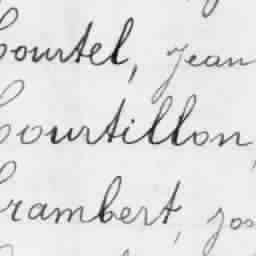 Courtel, Jean
Courtillon,
Crambert, jos